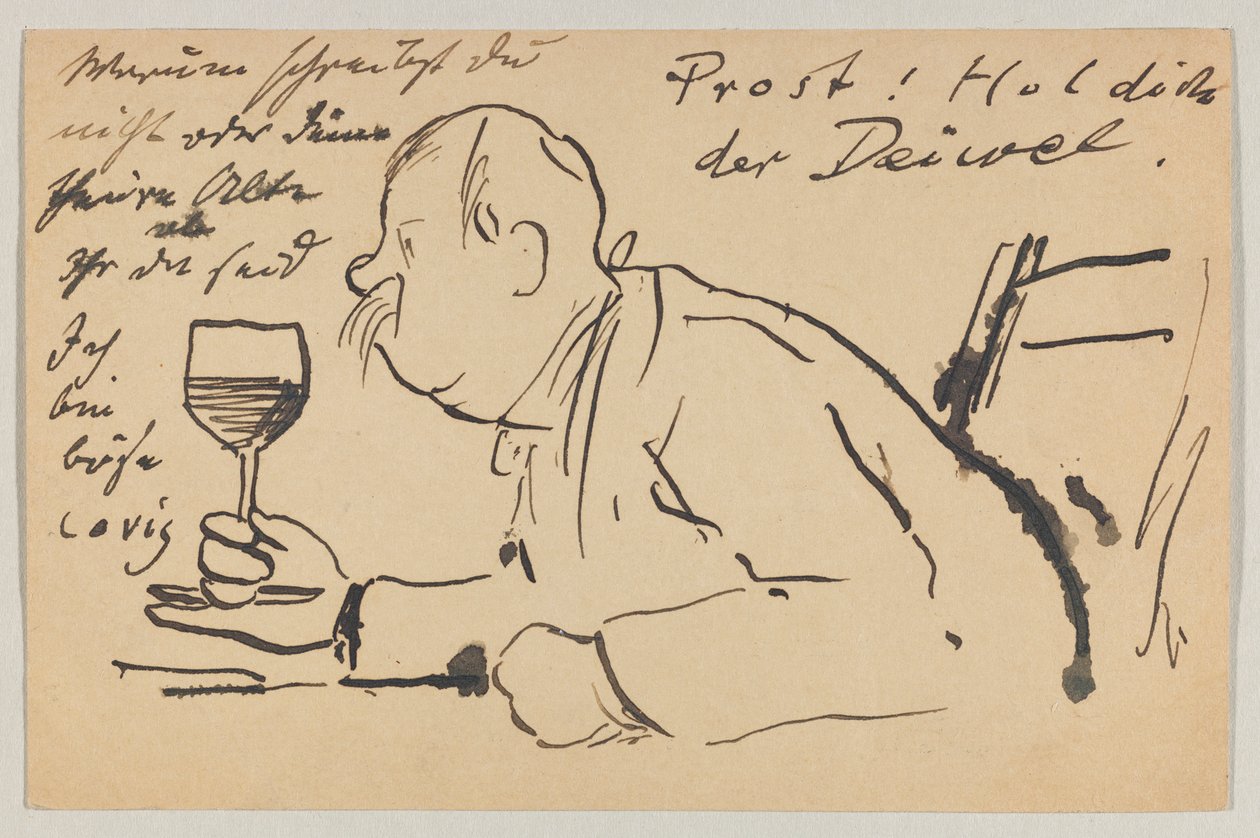 Warum schreibst du
nicht oder deine
theure Alte
ob
Ihr da seid
Ich
bin
böse
Lovis
Prost! Hol dich
der Deüwel.